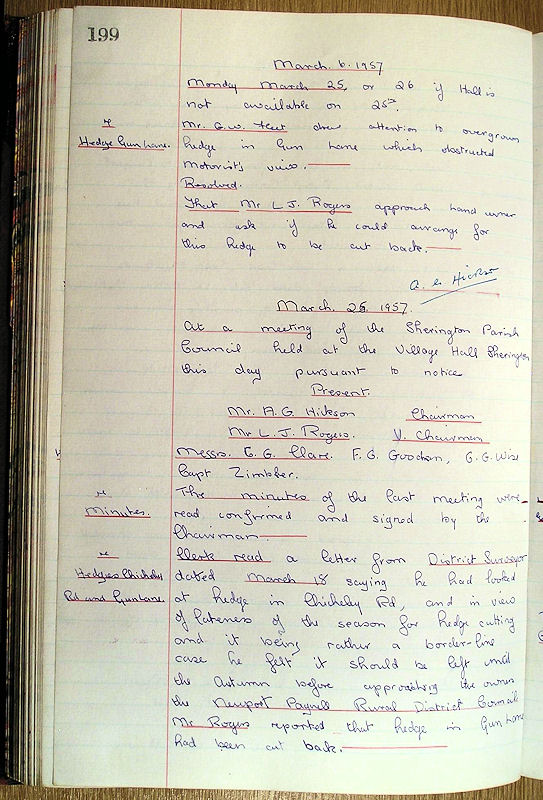 199
March. 6. 1957
Monday March 25, or 26 if Hall is
not available on 25th.
re
Hedge Gun Lane.
Mr. G.W. Fleet drew attention to overgrown
hedge in Gun Lane which obstructed
Motorist's view.
Resolved.
That Mr L.J. Rogers approach land owner
and ask if he could arrange for
this hedge to be cut back.
A. G. Hickson
March. 25. 1957.
At a meeting of the Sherington Parish
Council held at the Village Hall Sherington
this day pursuant to notice
Present.
Mr. A.G. Hickson Chairman
Mr L.J. Rogers. V. Chairman
Messrs. E.G. Clare. F.G. Goodson, G.G. Wise
Capt Zimbler.
re
Minutes.
The minutes of the last meeting were
read confirmed and signed by the
Chairman.
re
Hedges Chicheley
Rd and Gun Lane.
Clerk read a letter from District Surveyor
dated March 18 saying he had looked
at hedge in Chicheley Rd, and in view
of lateness of the season for hedge cutting
and it being rather a border-line
case he felt it should be left until
the Autumn before approaching the owners
the Newport Pagnell Rural District Council
Mr Rogers reported that hedge in Gun Lane
had been cut back.